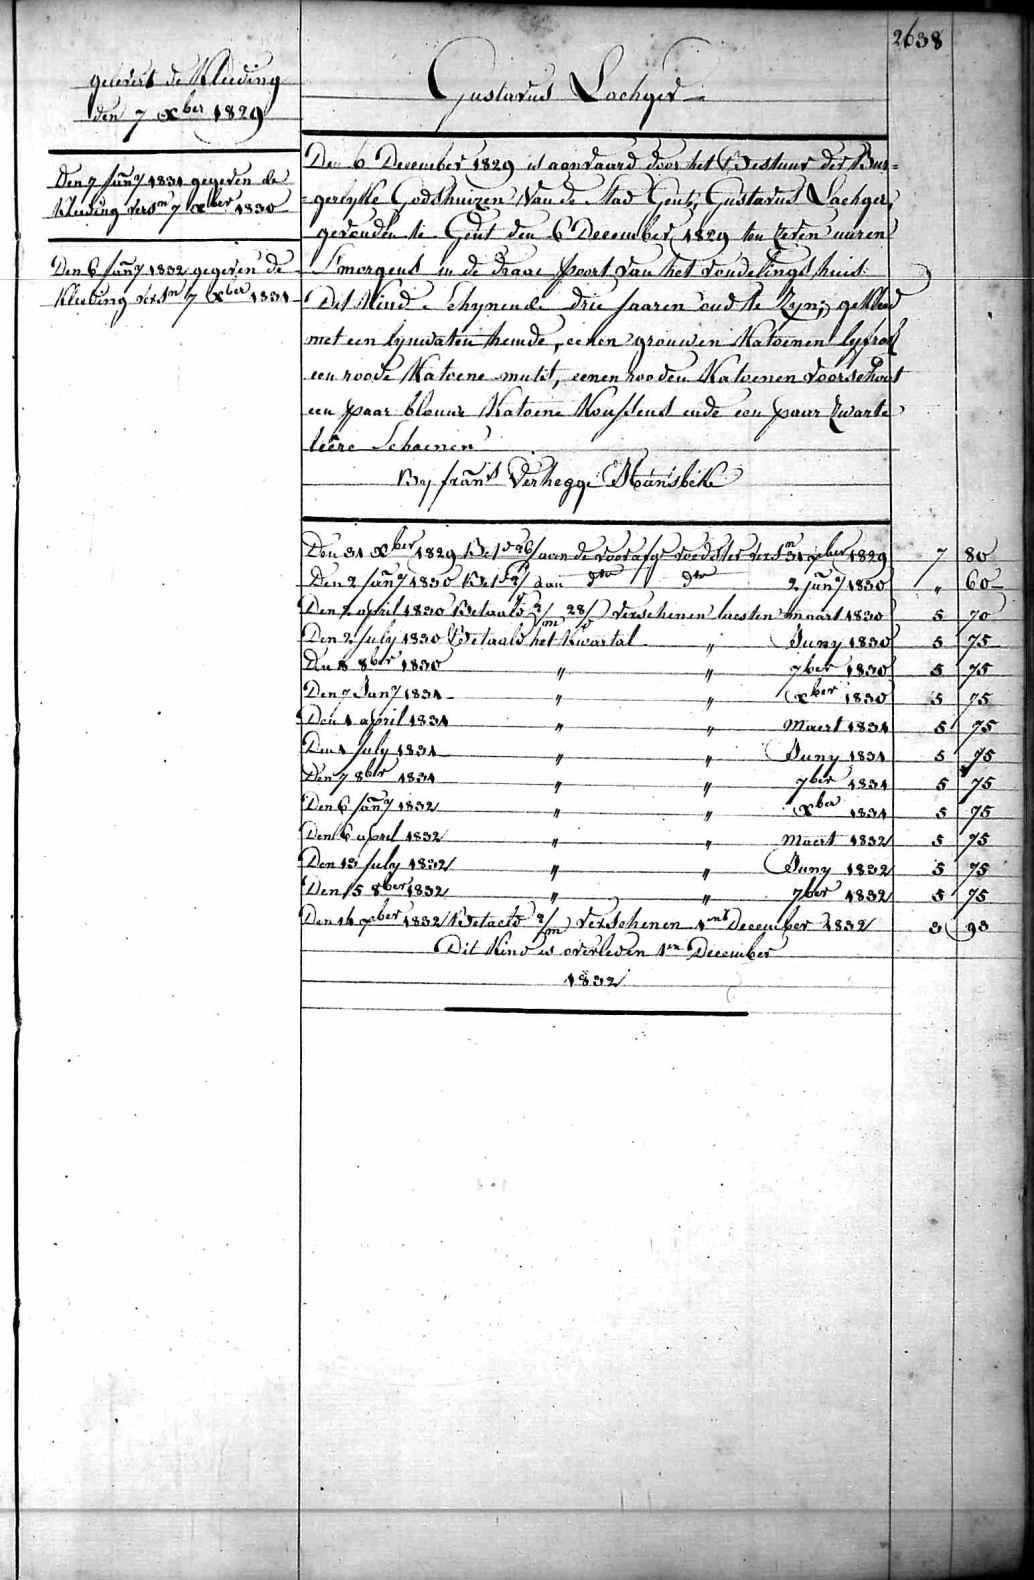 2638
gelevert de Kleeding
den 7 Xber 1829
Den 7 Janry 1831 gegeven de
Kleeding versn 7 Xber 1830
Den 6 Janry 1832 gegeven de
Kleeding versn 7 Xber 1831
Gustavus Lachger
Den 6 December 1829 is aenvaard door het Bestuur der Bur=
=gerlyke Godshuizen van de Stad Gent, Gustavus Lachger,
gevonden te Gent den 6 December 1829 ten zeven uuren
S'morgens in de draai poort van het vondelings huis
Dit Kind Schynende drie jaaren oud te zyn, gekleed
met een lynwaten hemde, eenen grouwen Katoenen lyfrok
een roode Katoene muts, eenen rooden Katoenen voorschoot
een paar blauwe Katoene Koussens ende een paar zwarte
leêre Schoenen
By frans Verhegge Munsbeke
Den 31 Xber 1829 Bet d 26/ aen de voorafge voedster vers 31 Xber 1829 7 80
Den 2 Janry 1830 Bet d 2/ aan dto dto 2 Janry 1830 " 60
Den 2 april 1830 Betaald 2/m 28/ verschenen laesten maart 1830 5 70
Den 2 July 1830 Betaald het Kwartal " Juny 1830 5 75
Den 8 8ber 1830 " " 7ber 1830 5 75
Den 7 Janry 1831 " " Xber 1830 5 75
Den 1 april 1831 " " Maert 1831 5 75
Den 1 July 1831 " " Juny 1831 5 75
Den 7 8ber 1831 " " 7ber 1831 5 75
Den 6 Janry 1832 " " Xber 1831 5 75
Den 6 april 1832 " " Maert 1832 5 75
Den 13 July 1832 " " Juny 1832 5 75
Den 15 8ber 1832 " " 7ber 1832 5 75
Den 14 Xber 1832 Betaeld 2/m verschenen 1en December 1832 3 93
Dit Kind is overleden 1en December
1832